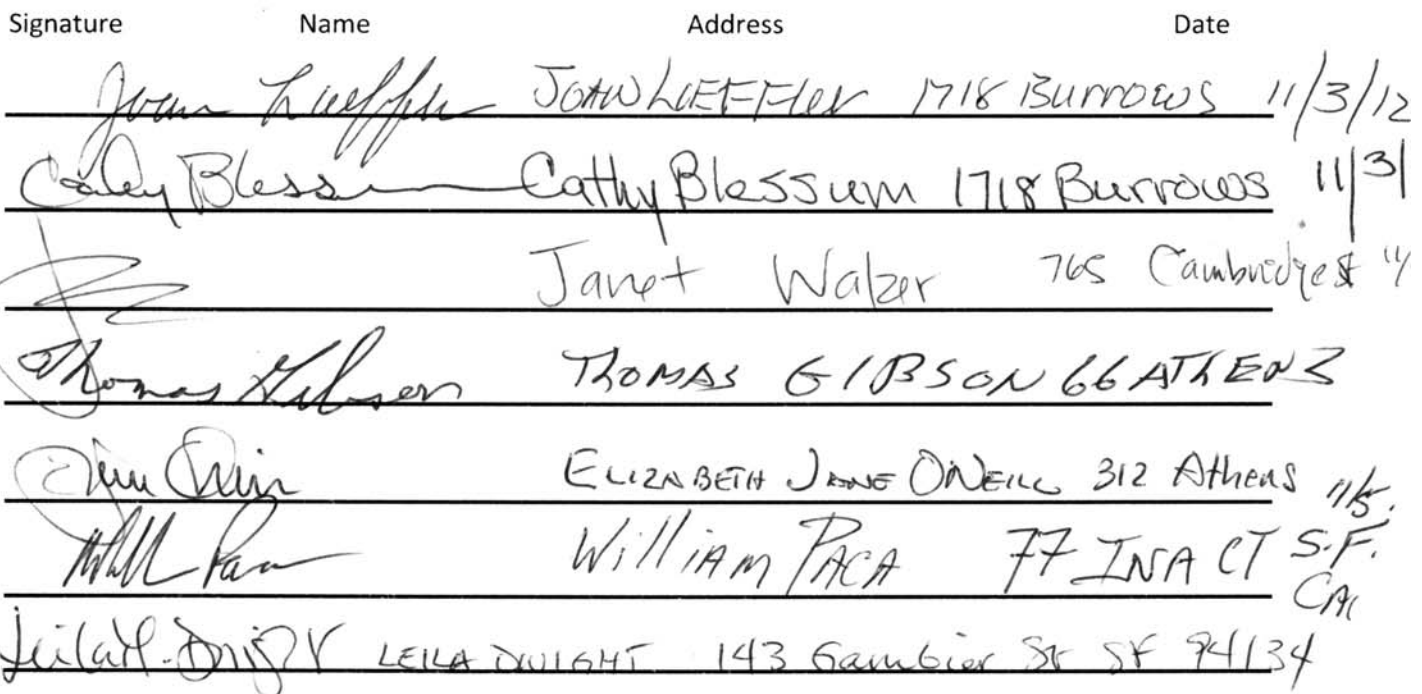 Signature Name Address Date
Joan Loeffler JOAN LOEFFler 1718 Burrows 11/3/12
Cathy Blessum Cathy Blessum 1718 Burrows 11/3/
Janet Walzer 765 Cambridge St 11/
Thomas Gibson THOMAS GIBSON 66 ATHENS
ELIZABETH JANE ONEILL 312 Athens 11/5.
William PACA 77 INA CT S.F. CAl
Leila H. Dwight LEILA DWIGHT 143 Gambier St SF 94134